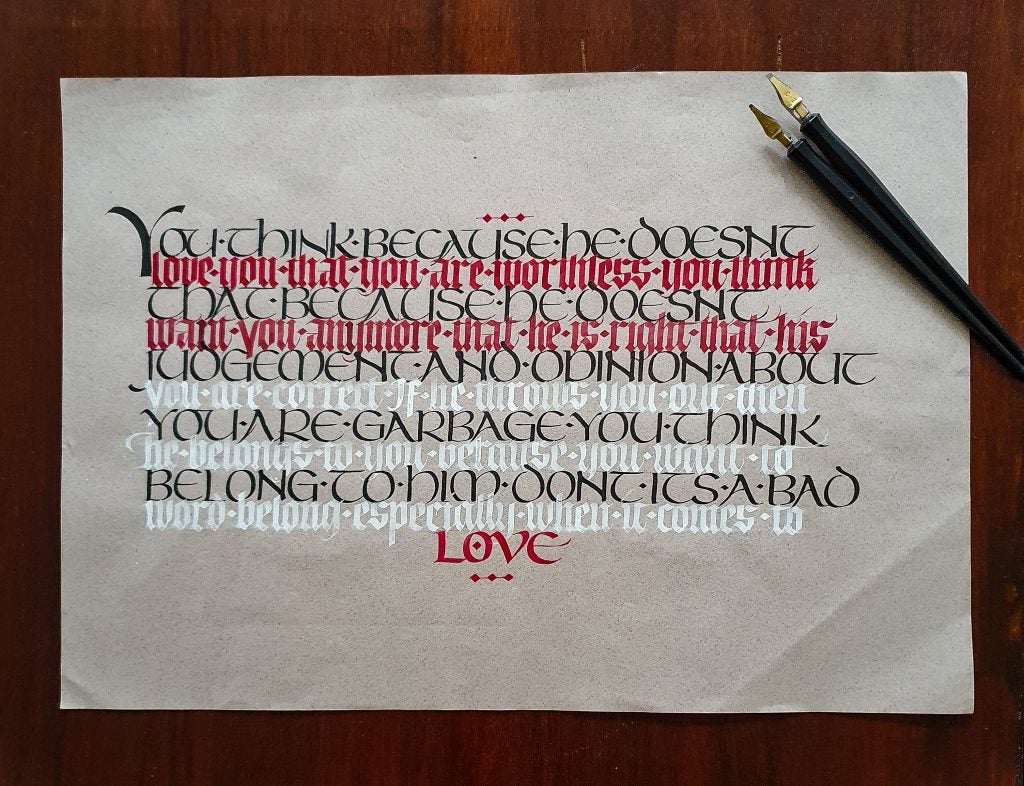 You·think·because·he·doesnt
love·you·that·you·are·worthless·you·think
that·because·he·doesnt
want·you·anymore·that·he·is·right·that·his
judgement·and·opinion·about
you·are·correct·If·he·throws·you·out·then
you·are·garbage·you·think
he·belongs·to·you·because·you·want·to
belong·to·him·dont·its·a·bad
word·belong·especially·when·it·comes·to
LOVE